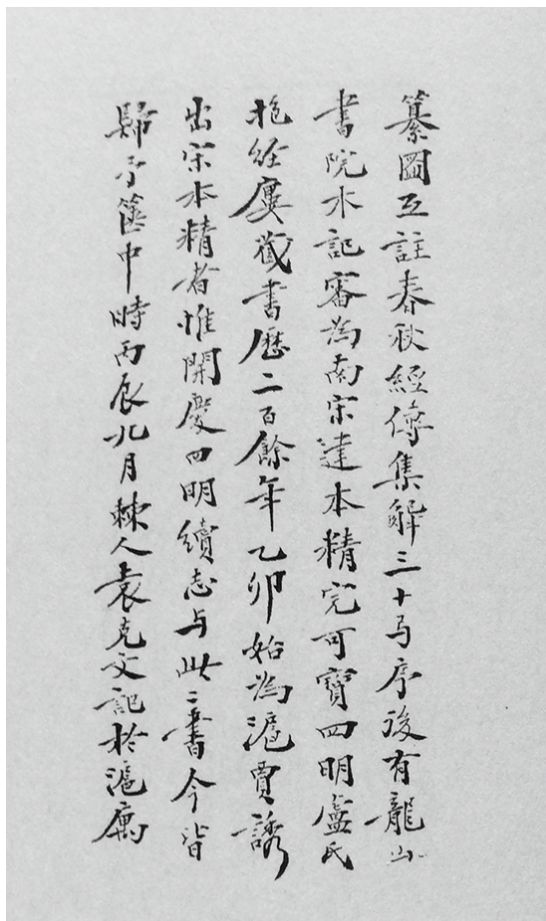 纂圖互註春秋經傳集解三十弓序後有龍山
書院木記審為南宋建本精完可寶四明盧氏
抱經廔藏書歷二百餘年乙卯始為滬賈誘
出宋本精者惟開慶四明續志与此二書今皆
歸予篋中時丙辰九月棘人袁克文記於滬寓